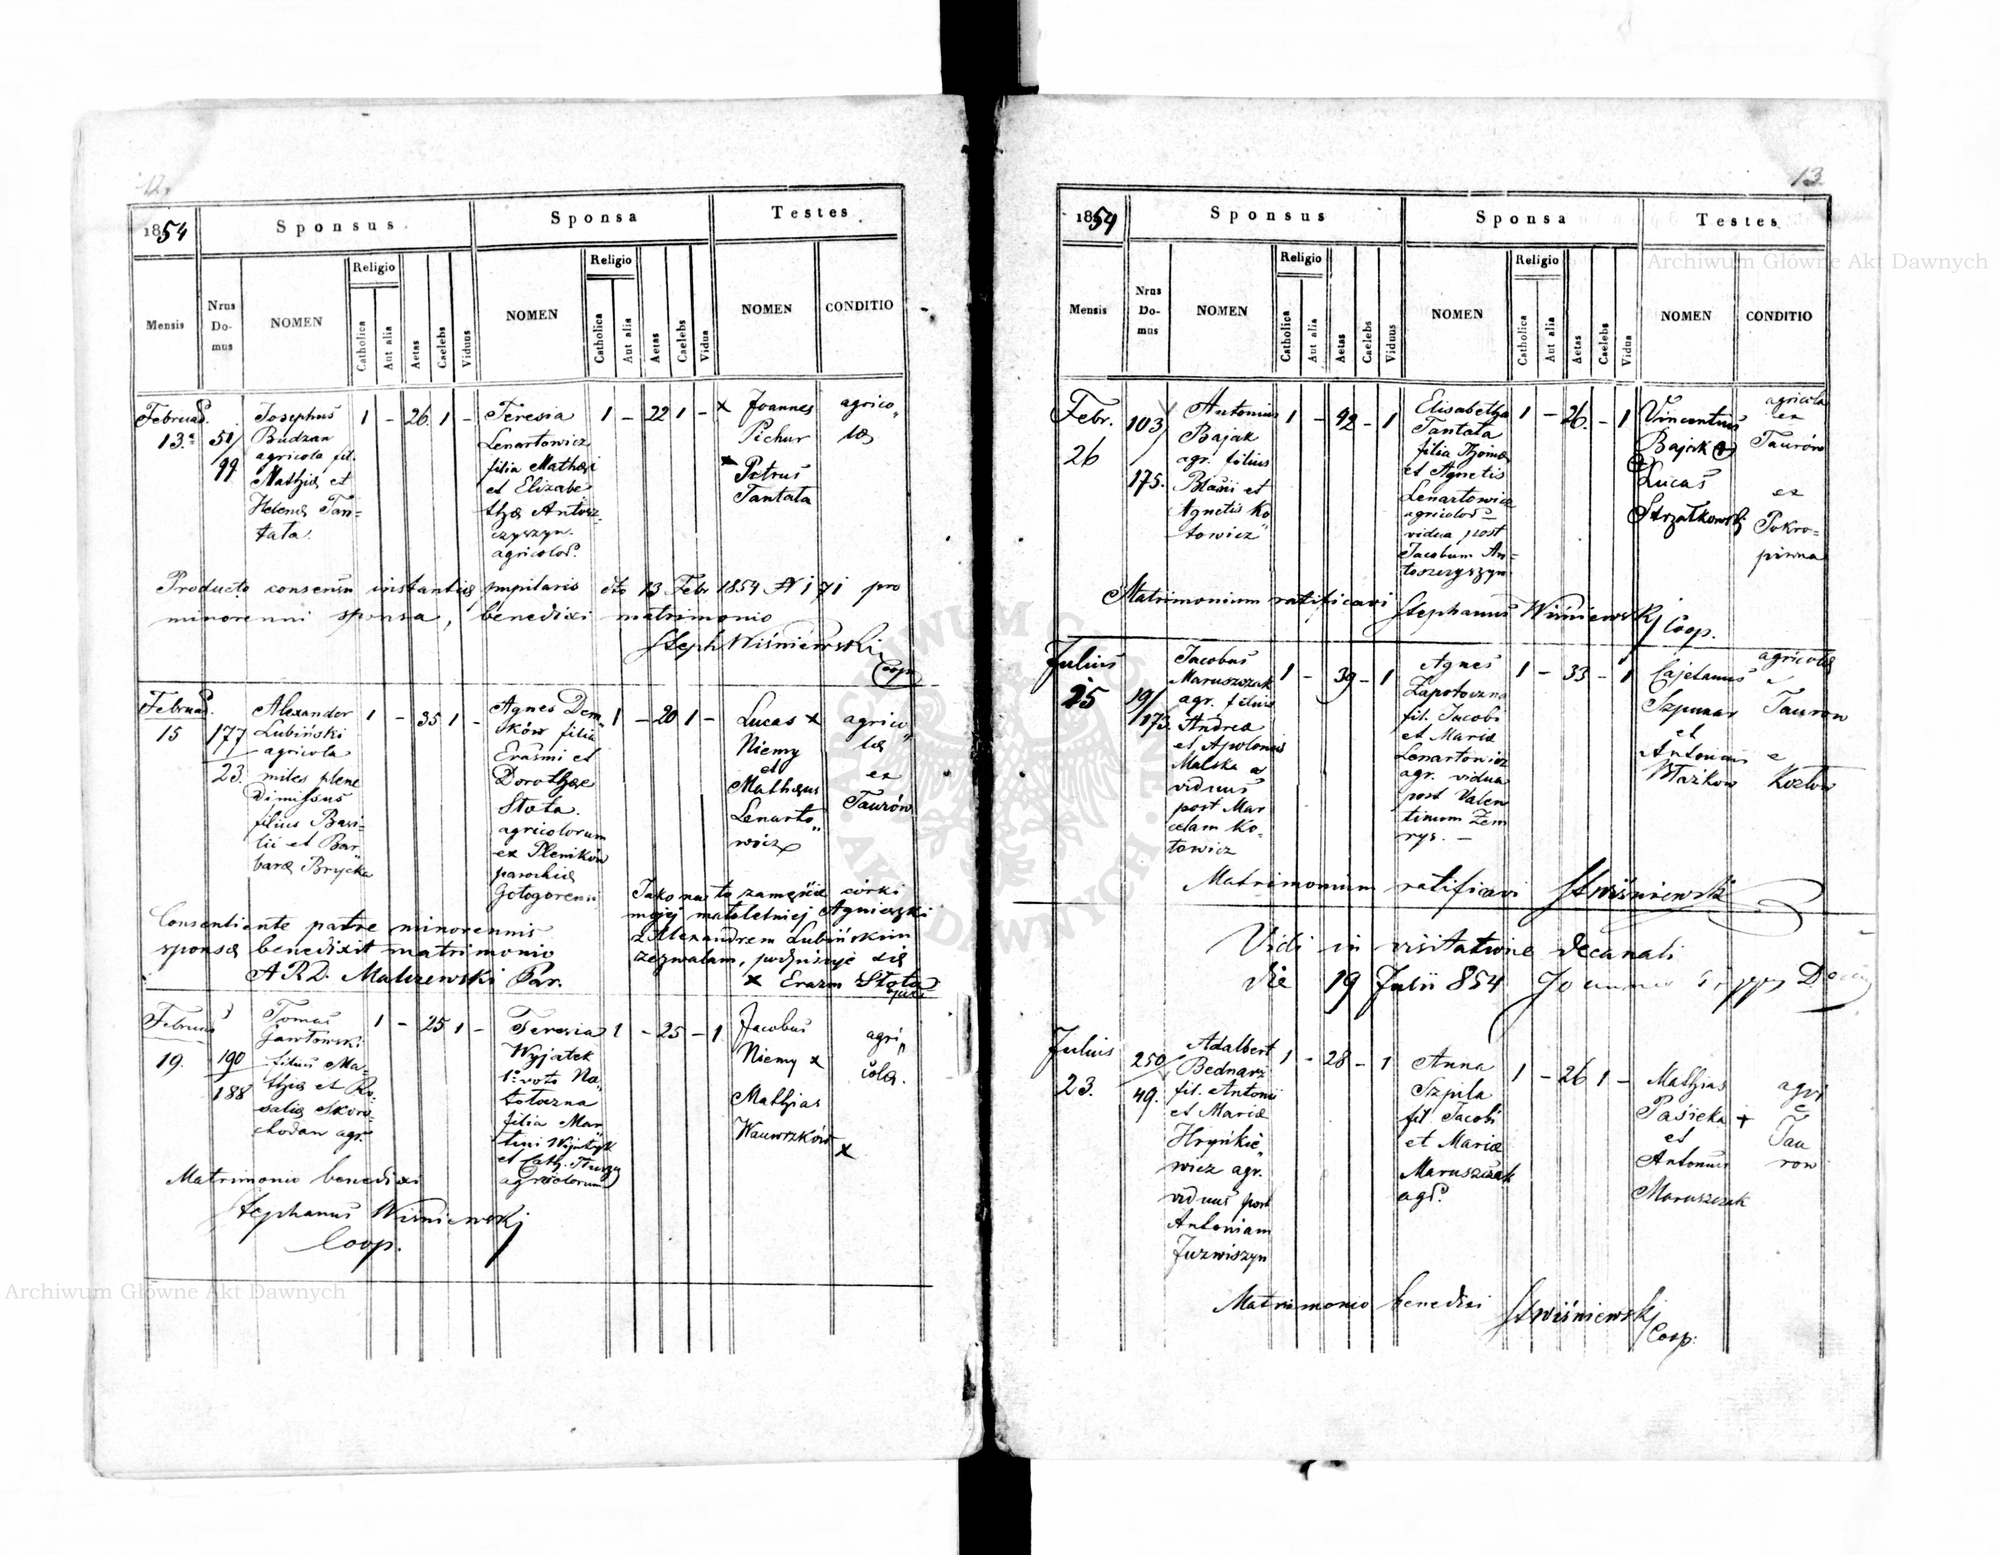 12.
1854
Sponsus
Sponsa
Testes
Mensis
Nrus Domus
NOMEN
Religio
Catholica
Aut alia
Aetas
Caelebs
Viduus
NOMEN
Religio
Catholica
Aut alia
Aetas
Caelebs
Vidua
NOMEN
CONDITIO
Februar.
13.
51/
99
Josephus
Budzan
agricola fil.
Mathiæ et
Helenæ Tan-
tata
1 - 26 1 -
Teresia
Lenartowicz
filia Mathæi
et Elizabe
thæ Antosz-
czyszyn.
agricolor.
1 - 22 1 -
x Joannes
Pichur
x Petrus
Tantata
agrico„
læ
Producto consensu instantiæ pupilaris dto 13 Febr 1854 N 171 pro
minorenni sponsa, benedixi matrimonio
Steph Wiśniewski
Coop.
Februar.
15
177
23.
Alexander
Lubiński
agricola
miles plene
dimissus
filius Basi-
lii et Bar
baræ Brycka
1 - 35 1 -
Agnes Dem„
sków filia
Erasmi et
Dorotheæ
Stota.
agricolorum
ex Pleników
parochiæ
Gołogorens.
1 - 20 1 -
Lucas x
Niemy
et
Matheus
Lenarto„
wicz x
agrico„
læ
ex
Taurów
Consentiente patre minorennis
sponsæ benedixit matrimonio
A R D. Malczewski Par.
Jako na to zamęście córki
mojej małoletniej Agnieszki
z Alexandrem Lubińskim
zezwalam, podpisuję się
x Erazm Stota
ojciec
Februar
19.
190
188
Tomas
Gawłowski
filius Ma-
thiæ et Ro-
saliæ Skoro-
chodan agr.
1 - 25 1 -
Teresia
Wyjatek
1º voto Na„
totozna
filia Mar„
tini Wyjatek
et Cath.
agricolorum
1 - 25 - 1
Jacobus
Niemy x
Mathias
Wawrzków
x
agri„
colæ.
Matrimonio benedixi
Stephanus Wiśniewski
Coop.
13.
1854
Sponsus
Sponsa
Testes
Mensis
Nrus Domus
NOMEN
Religio
Catholica
Aut alia
Aetas
Caelebs
Viduus
NOMEN
Religio
Catholica
Aut alia
Aetas
Caelebs
Vidua
NOMEN
CONDITIO
Febr.
26
103/
175.
Antonius
Bajak
agr. filius
Blasii et
Agnetis Ko
towicz
1 - 42 - 1
Elisabetha
Tantata
filia Thomæ
et Agnetis
Lenartowicz
agricolor.
vidua post
Jacobum An-
toszczyszyn
1 - 26. - 1
Vincentius
Bajak
Lucas
Strzałkowski
agricola
ex
Taurów
ex
Pokro-
piwna
Matrimonium ratificavi Stephanus Wiśniewski Coop.
Julius
15
191
173.
Jacobus
Maruszczak
agr. filius
Andrea
et Apolonia
Malska
viduus
post Mar
celam Ko-
towicz
1 - 39 - 1
Agnes
Zapotoczna
fil. Jacobi
et Mariæ
Lenartowicz
agr. vidua
post Valen
tinum Zem
rys. -
1 - 33 - 1
Cajetanus
Szpunar
et
Antonius
Błażkow
agricolæ
e
Taurow
e
Kozłow
Matrimonium ratificavi StWiśniewski
Vidi in visitatione decanali
die 19 Julii 854
Julius
23.
250/
49.
Adalbert
Bednarz
fil. Antonii
et Mariæ
Hryńkie„
wicz agr.
viduus post
Antoniam
Juzwiszyn
1 - 28 - 1
Anna
Szpila
fil. Jacobi
et Mariæ
Maruszczak
agr.
1 - 26 1 -
Mathias
Pasieka +
et
Antonius
Maruszczak
agri
e
Tau
row
Matrimonio benedixi StWiśniewski
Coop.
Archiwum Główne Akt Dawnych
Archiwum Główne Akt Dawnych
ARCHIWUM GŁÓWNE AKT DAWNYCH